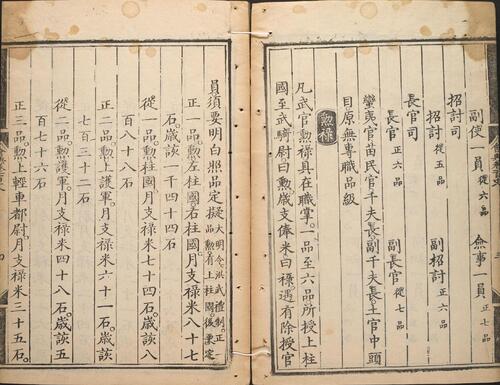 副使一員 從六品 僉事一員 正七品
招討司
招討 從五品 副招討 正六品
長官司
長官 正六品 副長官 從七品
蠻夷官苗民官千夫長副千夫長土官中頭
目原無專職品級
勲祿
凡武官勲祿具在職掌一品至六品所授上柱
國至武騎尉曰勲歲支俸米曰祿遇有除授官
員須要明白照品定擬 大明令洪武禮制正一品勲上柱國後定
正一品勲左柱國右柱國月支祿米八十七
石歲該一千四十四石
從一品勲柱國月支祿米七十四石歲該八
百八十八石
正二品勲上護軍月支祿米六十一石歲該
七百三十二石
從二品勲護軍月支祿米四十八石歲該五
百七十六石
正三品勲上輕車都尉月支祿米三十五石